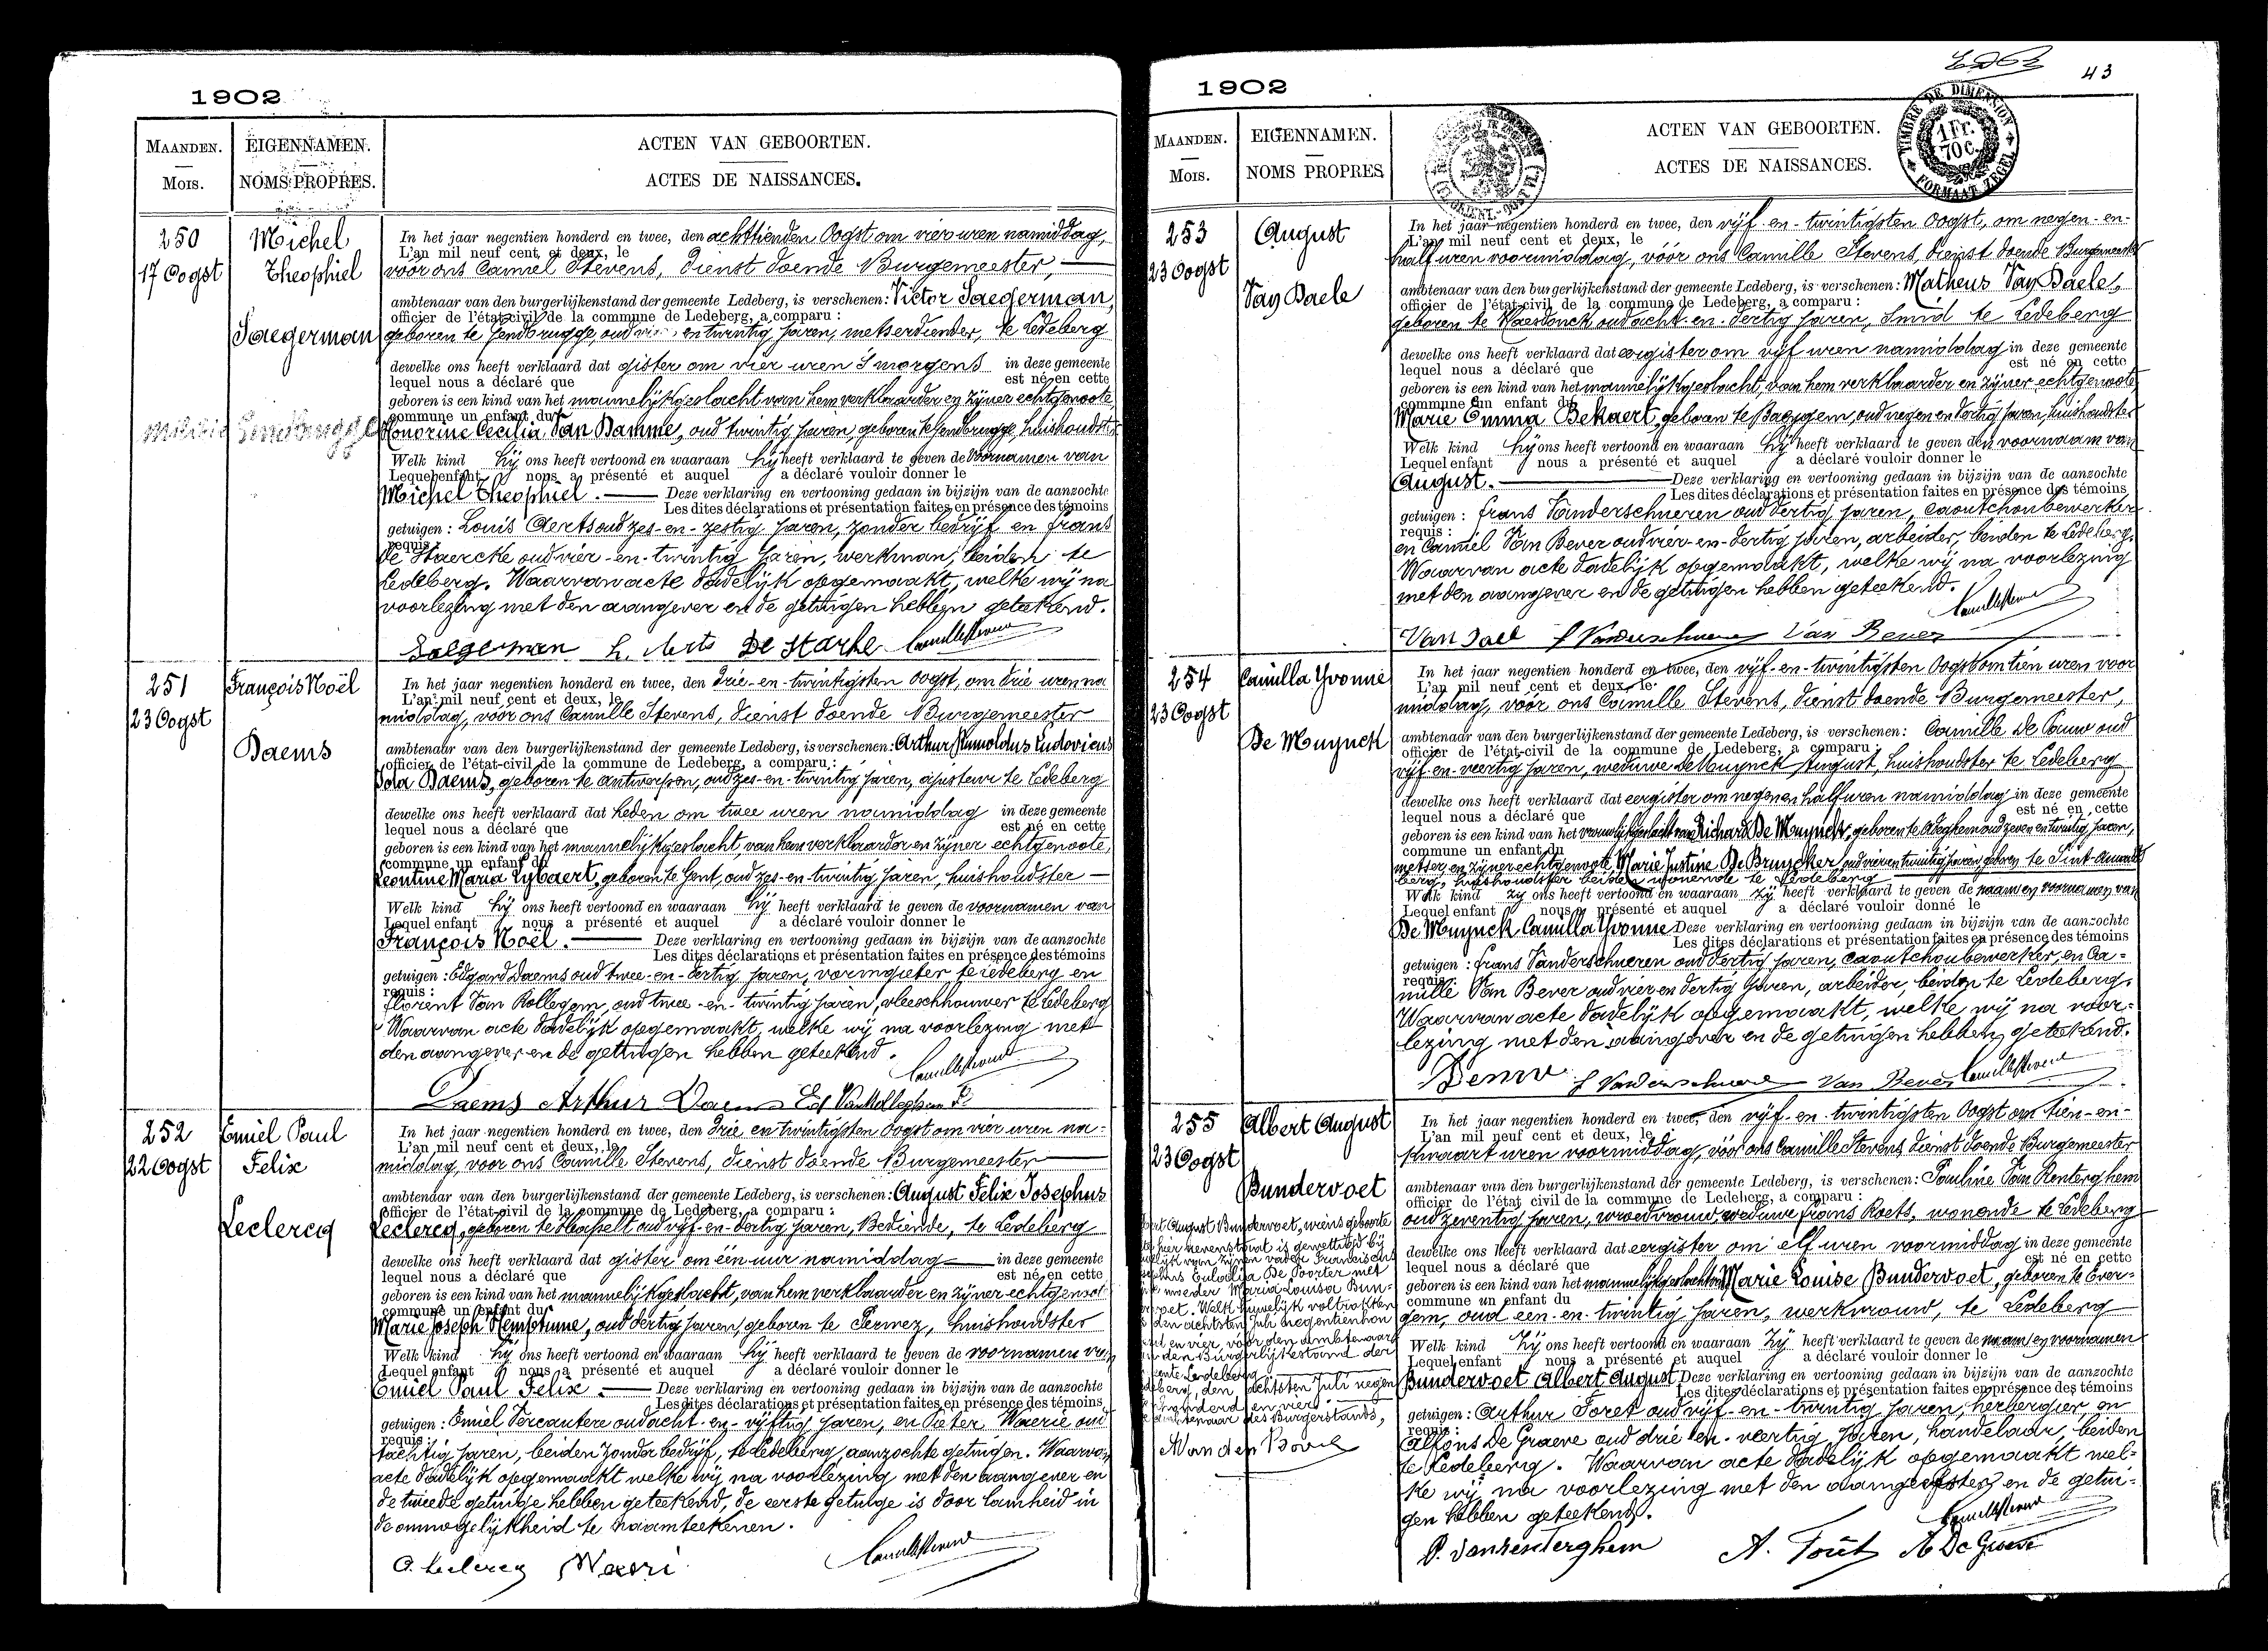 1902
MAANDEN.
Mois.
EIGENNAMEN.
NOMS PROPRES.
ACTEN VAN GEBOORTEN.
ACTES DE NAISSANCES.
250
17 Oogst
Michel
Theophiel
Saegerman
In het jaar negentien honderd en twee, den achttienden Oogst om vier uren namiddag,
L'an mil neuf cent et deux, le
voor ons Camiel Stevens, dienst doende Burgemeester,
ambtenaar van den burgerlijkenstand der gemeente Ledeberg, is verschenen: Victor Saegerman,
officier de l'état-civil de la commune de Ledeberg, a comparu :
geboren te Gendbrugge, oud en twintig jaren, metserdiender, te Ledeberg
dewelke ons heeft verklaard dat gister om vier uren 's morgens in deze gemeente
lequel nous a déclaré que est né en cette
geboren is een kind van het mannelijk geslacht van hem verklaarder en zijner echtgenoote
commune un enfant du
Honorine Cecilia Van Damme, oud twintig jaren, geboren te Gendbrugge, huishoudster
Welk kind hij ons heeft vertoond en waaraan hij heeft verklaard te geven de voornamen van
Lequel enfant nous a présenté et auquel a déclaré vouloir donner le
Michel Theophiel. Deze verklaring en vertooning gedaan in bijzijn van de aanzochte
Les dites déclarations et présentation faites en présence des témoins
getuigen : Louis Aerts oud zes-en-zestig jaren, zonder bedrijf en Frans
requis :
De Staercke oud vier-en-twintig jaren, werkman, beiden te
Ledeberg. Waarvan acte dadelijk opgemaakt, welke wij na
voorlezing met den aangever en de getuigen hebben geteekend.
Saegerman L. Aerts De Starke Camille Stevens
251
23 Oogst
François Noël
Daems
In het jaar negentien honderd en twee, den drie-en-twintigsten Oogst, om drie uren na
L'an mil neuf cent et deux, le
middag, voor ons Camille Stevens, dienst doende Burgemeester
ambtenaar van den burgerlijkenstand der gemeente Ledeberg, is verschenen: Arthur Rumoldus Ludovicus
officier de l'état-civil de la commune de Ledeberg, a comparu :
Daems, geboren te Antwerpen, oud zes-en-twintig jaren, ajusteur te Ledeberg
dewelke ons heeft verklaard dat heden om twee uren namiddag in deze gemeente
lequel nous a déclaré que est né en cette
geboren is een kind van het mannelijk geslacht van hem verklaarder en zijner echtgenoote
commune un enfant du
Leontine Maria Lybaert, geboren te Gent, oud zes-en-twintig jaren, huishoudster
Welk kind hij ons heeft vertoond en waaraan hij heeft verklaard te geven de voornamen van
Lequel enfant nous a présenté et auquel a déclaré vouloir donner le
François Noël. Deze verklaring en vertooning gedaan in bijzijn van de aanzochte
Les dites déclarations et présentation faites en présence des témoins
getuigen : Edgard Daems oud twee-en-dertig jaren, vormgieter te Ledeberg en
requis :
Florent Van Kollegem, oud twee-en-twintig jaren, vleeschhouwer te Ledeberg
Waarvan acte dadelijk opgemaakt, welke wij na voorlezing met
den aangever en de getuigen hebben geteekend.
Camille Stevens
Daems Arthur Daems Ed
252
22 Oogst
Emiel Paul
Felix
Leclercq
In het jaar negentien honderd en twee, den drie en twintigsten Oogst om vier uren na-
L'an mil neuf cent et deux, le
middag, voor ons Camille Stevens, dienst doende Burgemeester
ambtenaar van den burgerlijkenstand der gemeente Ledeberg, is verschenen: August Felix Josephus
officier de l'état-civil de la commune de Ledeberg, a comparu :
Leclercq, geboren te Hasselt oud vijf-en-dertig jaren, Bediende, te Ledeberg
dewelke ons heeft verklaard dat gister om één uur namiddag in deze gemeente
lequel nous a déclaré que est né en cette
geboren is een kind van het mannelijk geslacht, van hem verklaarder en zijner echtgenoot
commune un enfant du
Marie Joseph Hemptinne, oud dertig jaren geboren te Perwez, huishoudster
Welk kind hij ons heeft vertoond en waaraan hij heeft verklaard te geven de voornamen van
Lequel enfant nous a présenté et auquel a déclaré vouloir donner le
Emiel Paul Felix. Deze verklaring en vertooning gedaan in bijzijn van de aanzochte
Les dites déclarations et présentation faites en présence des témoins
getuigen : Emiel Vercautere oud acht-en-vijftig jaren, en Pieter Waerie oud
requis :
tachtig jaren, beiden zonder bedrijf, te Ledeberg, aanzochte getuigen. Waarvan
acte dadelijk opgemaakt welke wij na voorlezing met den aangever en
de tweede getuige hebben geteekend, de eerste getuige is door lamheid in
de onmogelijkheid te naamteekenen.
A. Leclercq Waeri Camille Stevens
1902
43
MAANDEN.
Mois.
EIGENNAMEN.
NOMS PROPRES
ACTEN VAN GEBOORTEN.
ACTES DE NAISSANCES.
TIMBRE DE DIMENSION
1 Fr.
70 c.
FORMAAT ZEGEL
253
23 Oogst
August
Van Daele
In het jaar negentien honderd en twee, den vijf-en-twintigsten Oogst, om negen-en-
L'an mil neuf cent et deux, le
half uren voormiddag, vóór ons Camille Stevens, dienst doende Burgemeester
ambtenaar van den burgerlijkenstand der gemeente Ledeberg, is verschenen: Matheus Van Daele,
officier de l'état-civil de la commune de Ledeberg, a comparu :
geboren te Haesdonck oud acht-en-dertig jaren, Smid te Ledeberg
dewelke ons heeft verklaard dat eergister om vijf uren namiddag in deze gemeente
lequel nous a déclaré que est né en cette
geboren is een kind van het mannelijk geslacht, van hem verklaarder en zijner echtgenoote
commune un enfant du
Marie Emma Bekaert, geboren te Baeygem, oud negen en dertig jaren, huishoudster
Welk kind hij ons heeft vertoond en waaraan hij heeft verklaard te geven den voornaam van
Lequel enfant nous a présenté et auquel a déclaré vouloir donner le
August. Deze verklaring en vertooning gedaan in bijzijn van de aanzochte
Les dites déclarations et présentation faites en présence des témoins
getuigen : Frans Vanderschueren oud dertig jaren, caoutchoubewerker
requis :
en Camiel Van Bever oud vier-en-dertig jaren, arbeider, beiden te Ledeberg.
Waarvan acte dadelijk opgemaakt, welke wij na voorlezing
met den aangever en de getuigen hebben geteekend.
Camille Stevens
Van Dael F Vanderschueren Van Bever
254
23 Oogst
Camilla Yvonne
De Muynck
In het jaar negentien honderd en twee, den vijf-en-twintigsten Oogst om tien uren voor
L'an mil neuf cent et deux, le
middag, vóór ons Camille Stevens, dienst doende Burgemeester,
ambtenaar van den burgerlijkenstand der gemeente Ledeberg, is verschenen: Camille De Pauw oud
officier de l'état-civil de la commune de Ledeberg, a comparu :
vijf-en-veertig jaren, weduwe de Muynck August, huishoudster te Ledeberg
dewelke ons heeft verklaard dat eergister om negen en half uren namiddag in deze gemeente
lequel nous a déclaré que est né en cette
geboren is een kind van het vrouwelijk geslacht van Richard De Muynck, geboren te oud zeven en twintig jaren,
commune un enfant du
metser, en zijner echtgenoote Marie Justine De Bruycker, oud vier en twintig jaren geboren te Sint-Amands
berg, huishoudster beiden wonende te Ledeberg
Welk kind zij ons heeft vertoond en waaraan zij heeft verklaard te geven de naam en voornamen van
Lequel enfant nous a présenté et auquel a déclaré vouloir donné le
De Muynck Camilla Yvonne Deze verklaring en vertooning gedaan in bijzijn van de aanzochte
Les dites déclarations et présentation faites en présence des témoins
getuigen : Frans Vanderschueren oud dertig jaren, caoutchoubewerker, en Ca-
requis :
mille Van Bever oud vier en dertig jaren, arbeider, beiden te Ledeberg.
Waarvan acte dadelijk opgemaakt, welke wij na voor-
lezing met den aangever en de getuigen hebben geteekend.
F Vanderschueren Van Bever Camille Stevens
255
23 Oogst
Albert August
Bundervoet
August Bundervoet, wiens geboorte
hier nevenstaat is gewettigd bij
van zijnen vader Franciscus
Eulodia De Poorter met
moeder Maria Louisa Bun-
voet. Welk huwelijk voltrokken
den achtsten Juli negentienhon
en vier, voor den Ambtenaar
den Burgerlijkestand der
Ledeberg
den achtsten Juli negen
honderd en vier.
des Burgerstands,
A Van den Bove
In het jaar negentien honderd en twee, den vijf-en-twintigsten Oogst om tien-en-
L'an mil neuf cent et deux, le
kwaart uren voormiddag, vóór ons Camille Stevens dienst doende Burgemeester
ambtenaar van den burgerlijkenstand der gemeente Ledeberg, is verschenen: Pauline Van Renterghem
officier de l'état civil de la commune de Ledeberg, a comparu :
oud zeventig jaren, vroedvrouw weduwe Frans Roets, wonende te Ledeberg
dewelke ons heeft verklaard dat eergister om elf uren voormiddag in deze gemeente
lequel nous a déclaré que est né en cette
geboren is een kind van het mannelijk geslacht van Marie Louise Bundervoet, geboren te Ever-
commune un enfant du
gem, oud een-en-twintig jaren, werkvrouw, te Ledeberg
Welk kind Zij ons heeft vertoond en waaraan Zij heeft verklaard te geven de naam en voornamen
Lequel enfant nous a présenté et auquel a déclaré vouloir donner le
Bundervoet Albert August Deze verklaring en vertooning gedaan in bijzijn van de aanzochte
Les dites déclarations et présentation faites en présence des témoins
getuigen : Arthur Foret oud vijf-en-twintig jaren, herbergier en
requis :
Alfons De Graeve oud drie en-veertig jaren, handelaar, beiden
te Ledeberg. Waarvan acte dadelijk opgemaakt wel-
ke wij na voorlezing met den aangeefster en de getui-
gen hebben geteekend.
Camille Stevens
P. Vanrenterghem A. Foret A De Graeve